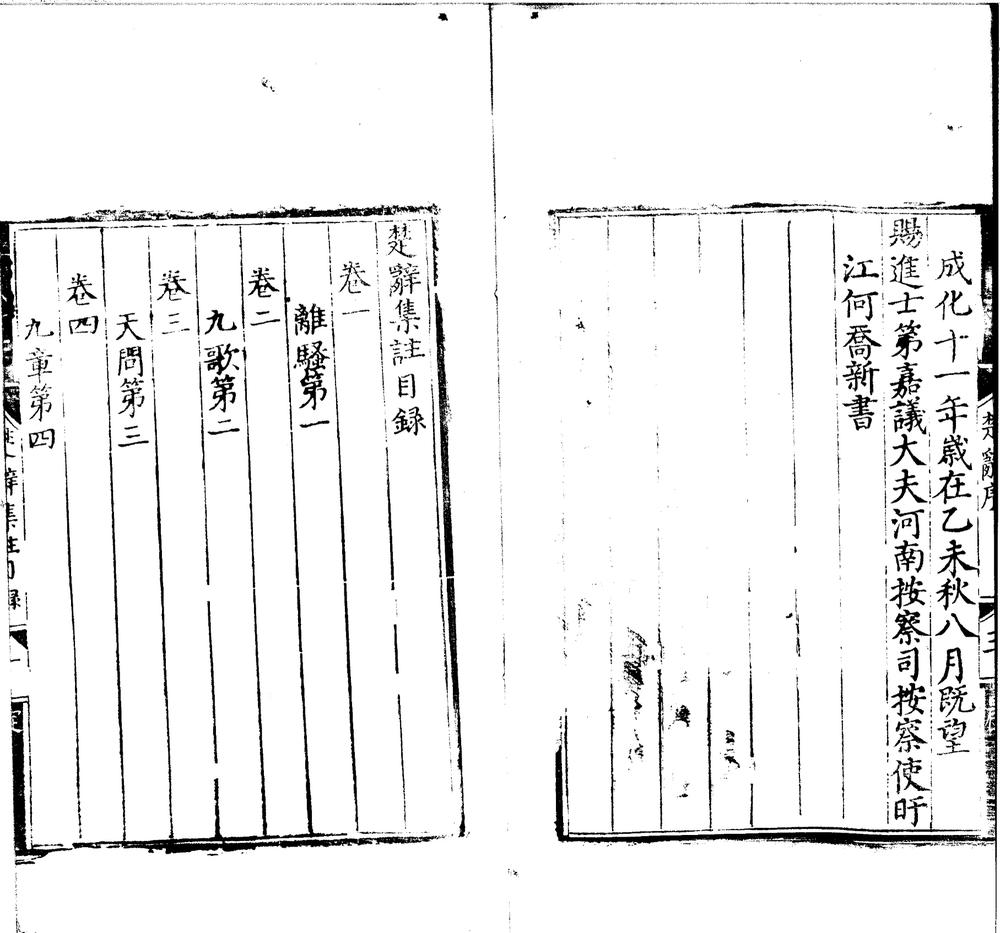 成化十一年歲在乙未秋八月既望
賜進士第嘉議大夫河南按察司按察使旴
江何喬新書
楚辭序
楚辭集註目録
卷一
離騷第一
卷二
九歌第二
卷三
天問第三
卷四
九章第四
楚辭集註目録
一